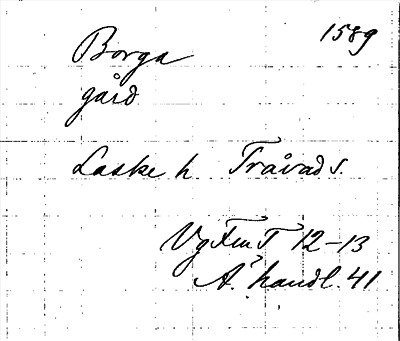 Borga 1589
gård
Laske h. Tråvad s.
VgFmT 12-13
Ä. handl. 41